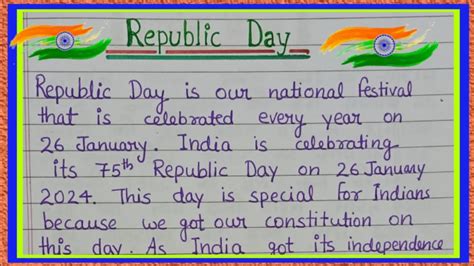 Republic Day
Republic Day is our national festival
that is celebrated every year on
26 January. India is celebrating
its 75th Republic Day on 26 January
2024. This day is special for Indians
because we got our constitution on
this day. As India got its independence